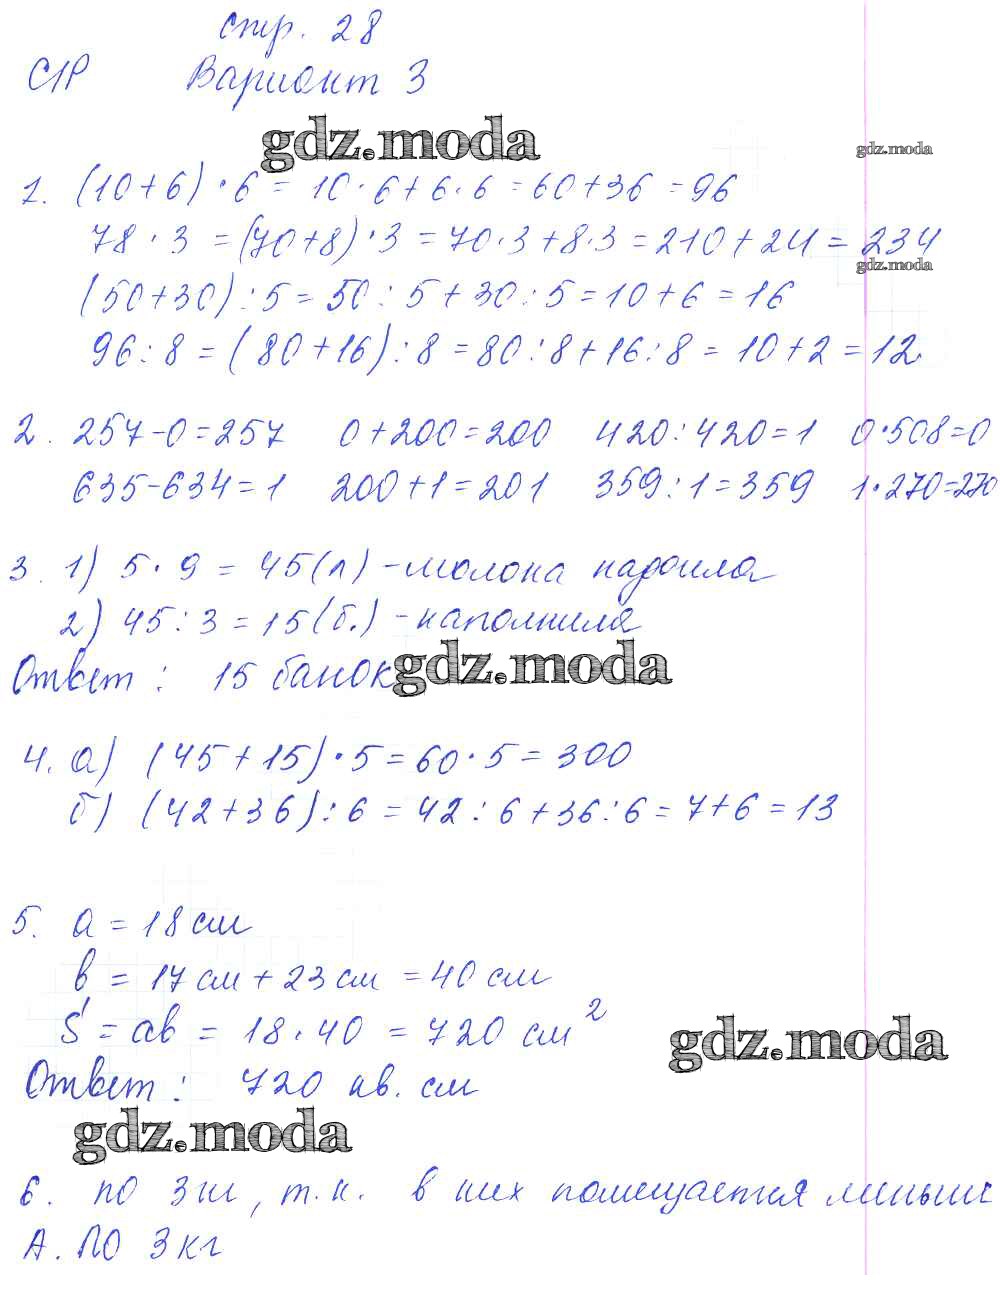 стр. 28
С1Р Вариант 3
gdz.moda
gdz.moda
1. (10+6)·6 = 10·6+6·6 = 60+36 = 96
78·3 = (70+8)·3 = 70·3+8·3 = 210+24 = 234
gdz.moda
(50+30):5 = 50:5+30:5 = 10+6 = 16
96:8 = (80+16):8 = 80:8+16:8 = 10+2 = 12
2. 257-0=257 0+200=200 420:420=1 0·508=0
635-634=1 200+1=201 359:1=359 1·270=270
3. 1) 5·9 = 45(л) - молока надоила
2) 45:3 = 15(б.) - наполнила
Ответ: 15 банок
gdz.moda
4. а) (45+15)·5 = 60·5 = 300
б) (42+36):6 = 42:6+36:6 = 7+6 = 13
5. a = 18 см
b = 17 см + 23 см = 40 см
S = ab = 18·40 = 720 см²
gdz.moda
Ответ: 720 кв. см
gdz.moda
6. по 3 кг, т.к. в них помещается меньше
А. по 3 кг